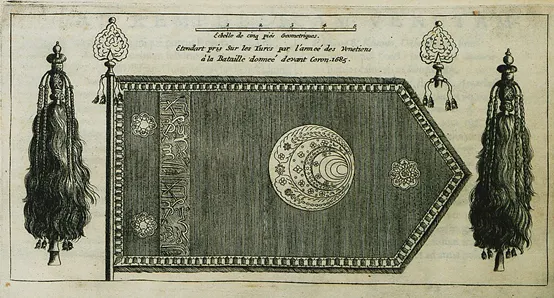 1 2 3 4 5
Echelle de cinq piés Geometriques.
Etendart pris Sur les Turcs par l'armeé des Venetiens
à la Bataille donneé devant Coron. 1685.